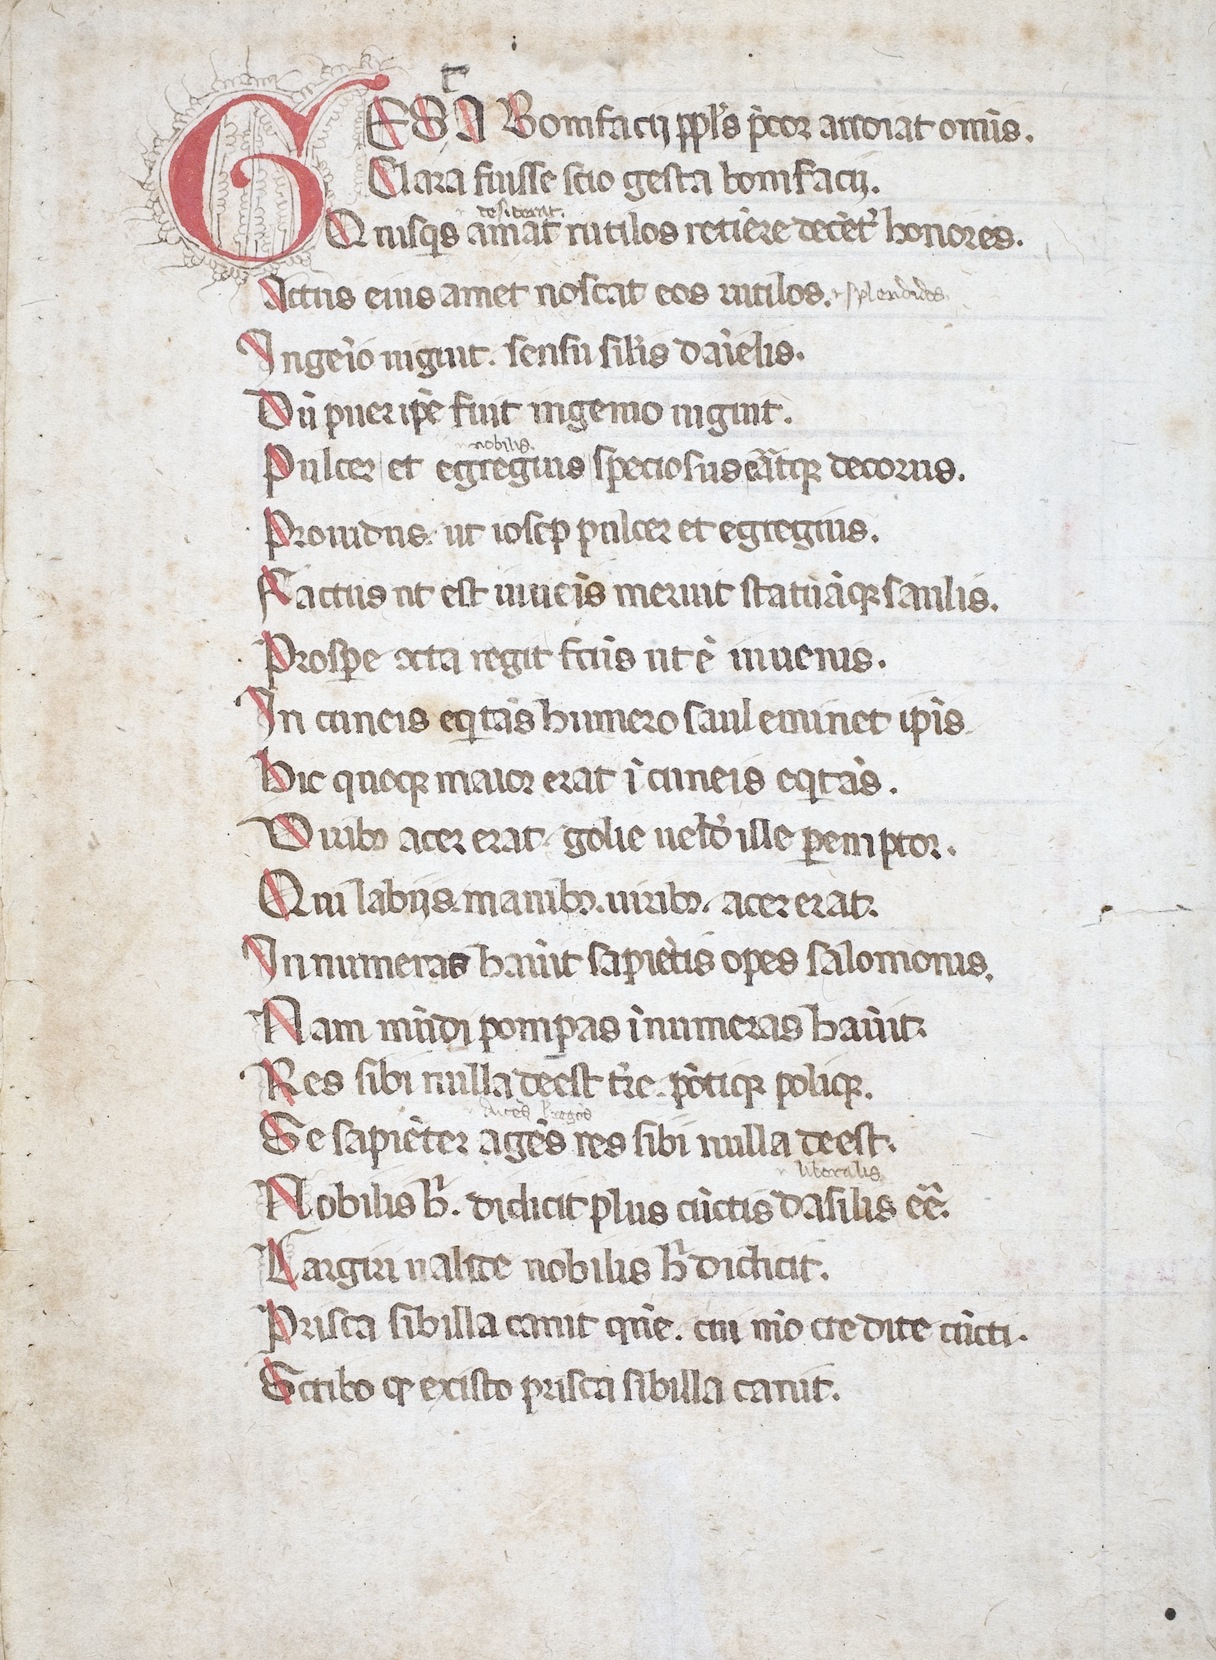 GESTA Bonifacii ppl's p̄cor attendat omīs.
Clara fuisse scio gesta bonifacij.
desiderat.
Quisqs amat rutilos retiēre decēt' honores.
Actus eius amet noscat eos rutilos. splendidos.
Ingeīo uiguit. sensu silīs daīelis.
Dū puer ip̄e fuit ingenio uiguit.
nobilis.
Pulcer et egregius speciosus decorus.
Prouidus. ut iosep pulcer et egregius.
Factus ut est iuueīs meruit statuāqȝ saulis.
Prospe regit ut ē iuuenis.
In cuneis eq̄tās humero saul eminet ip̄is
Hic quoqȝ maior erat ī cuneis eq̄tās.
Uiribȝ acer erat. golie ille pemptor.
Qui labijs. manibȝ. uiribȝ. acer erat.
Innumeras hauīt sapiētis opes salomonis.
Nam mūdi pompas īnumeras hauīt.
Res sibi nulla deest tr̄e. pōtiqȝ poliqȝ.
ducēs
Se sapiēter agēs res sibi nulla deest.
liberalis
Nobilis h'. didicit plus cūctis dasilis eē.
Largiri ualide nobilis h' didicit.
Prisca sibilla canit credite cūcti.
Scribo qȝ existo prisca sibilla canit.